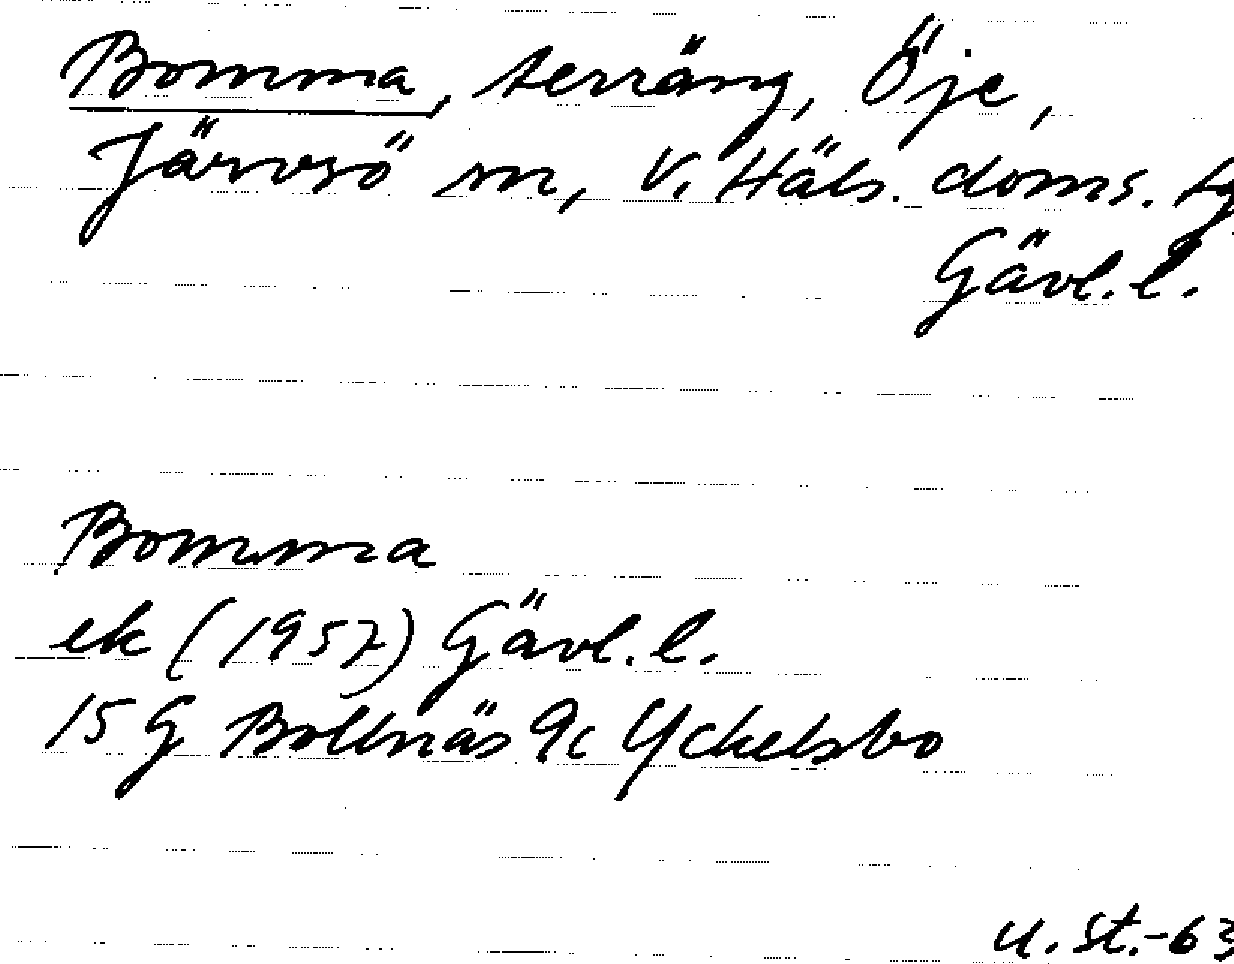 Bomma, terräng, Öje,
Järvsö sn, V. Häls. doms. tg
Gävl. l.
Bomma
ek (1957) Gävl. l.
15 G Bollnäs 9c Yckelsbo
U. St.-63